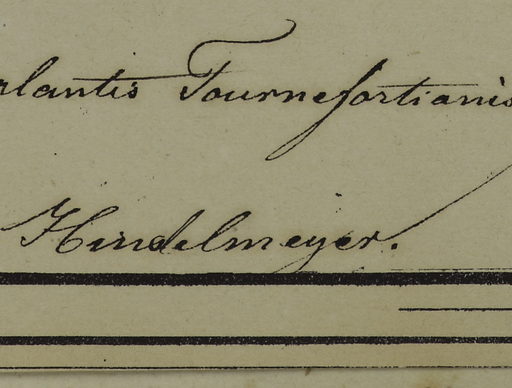 rlantis Tournefortianis
Hindelmeyer.